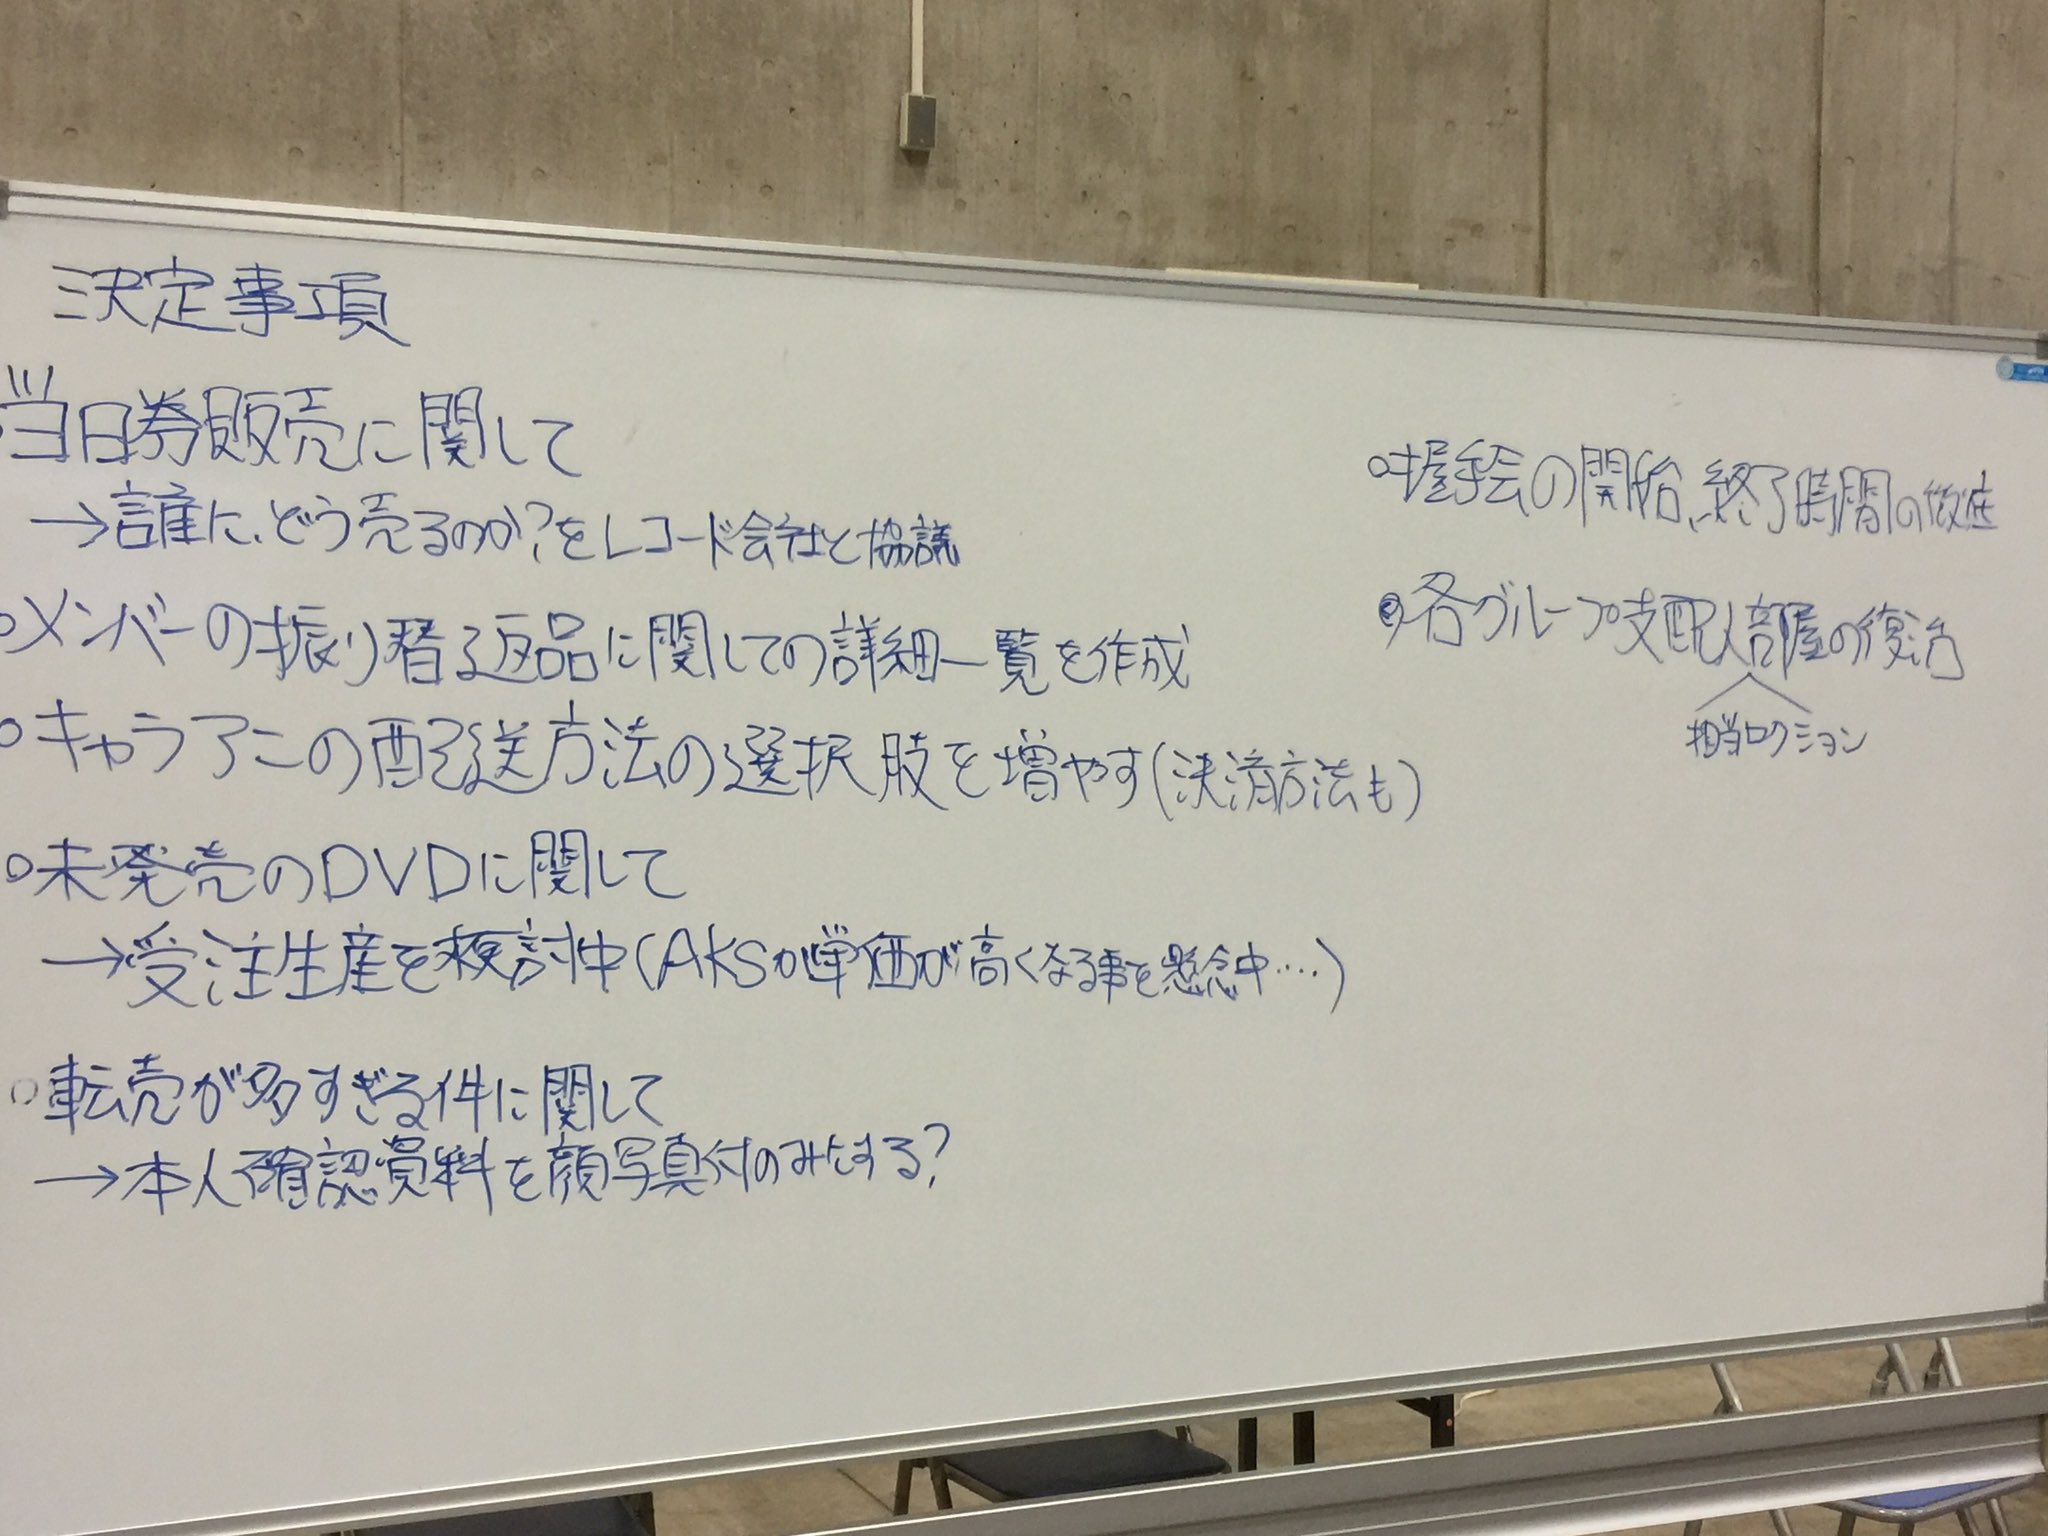 決定事項
○当日券販売に関して
→誰に、どう売るのか?をレコード会社と協議
○メンバーの振り替る返品に関しての詳細一覧を作成
○キャラアニの配送方法の選択肢を増やす(決済方法も)
○未発売のDVDに関して
→受注生産を検討中(AKSが単価が高くなる事を懸念中....)
○転売が多すぎる件に関して
→本人確認資料を顔写真付のみにする?
○握手会の開始、終了時間の徹底
○各グループ支配人部屋の復活
担当ロクション